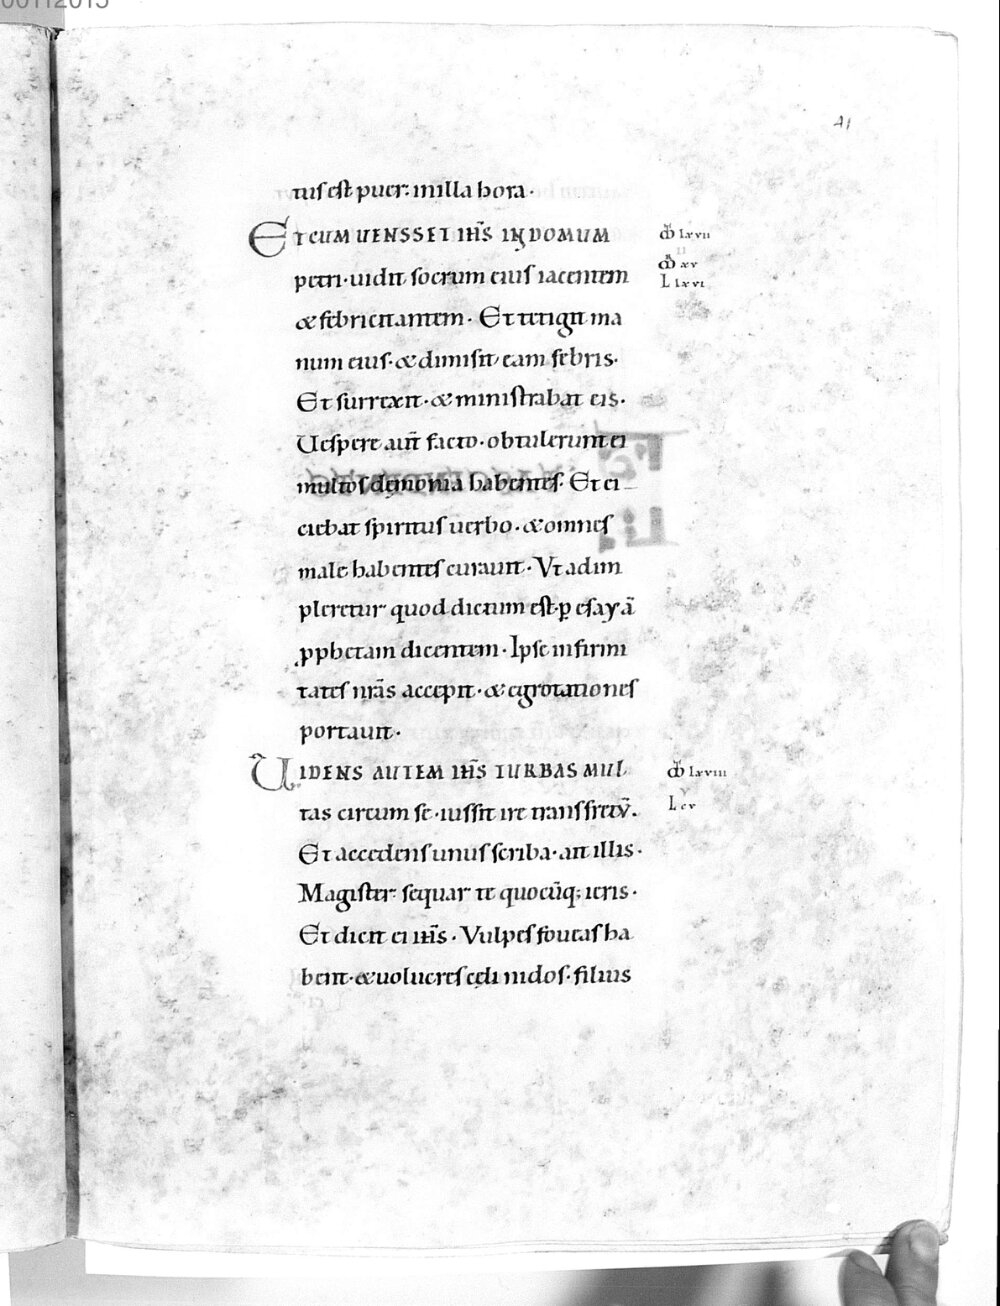 41
tus est puer in illa hora·
ET CUM UENISSET IH̄S IN DOMUM
petri·uidit socrum eius iacentem
& febricitantem· Et tetigit ma
num eius·& dimisit eam febris·
Et surrexit·& ministrabat eis·
Uespere aut̄ facto·obtulerunt ei
multos demonia habentes· Et ei
ciebat spiritus uerbo·& omnes
male habentes curauit·Vt adim
pleretur quod dictum est·ꝑ esayā
ꝓphetam dicentem·Ipse infirmi
tates nr̄as accepit·& egrotationes
portauit·
UIDENS AUTEM IH̄S TURBAS MUL
tas circum se·iussit ire trans fretū·
Et accedens unus scriba·ait illis·
Magister sequar te quocūq; ieris·
Et dicit ei ih̄s·Vulpes foueas ha
bent·& uolucres celi nidos·filius
lxvii
xv
L lxvi
lxviii
L cv